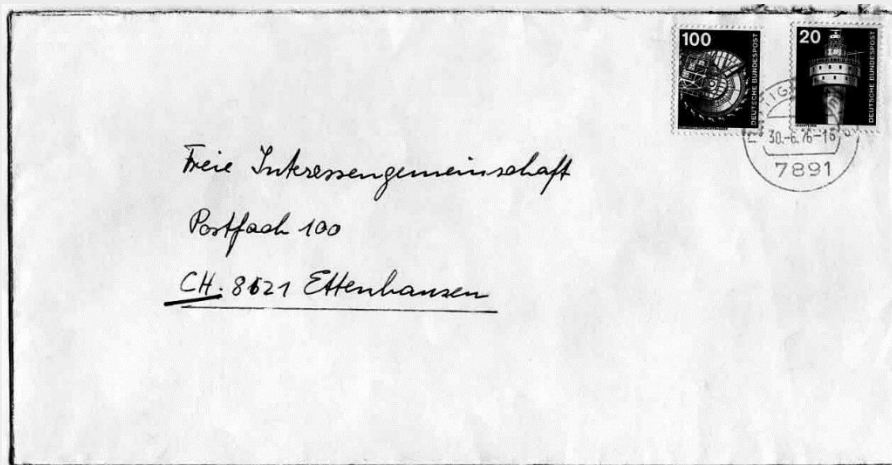 100
DEUTSCHE BUNDESPOST
20
DEUTSCHE BUNDESPOST
30.-6.76-16
7891
Freie Interessengemeinschaft
Postfach 100
CH. 8621 Ettenhausen